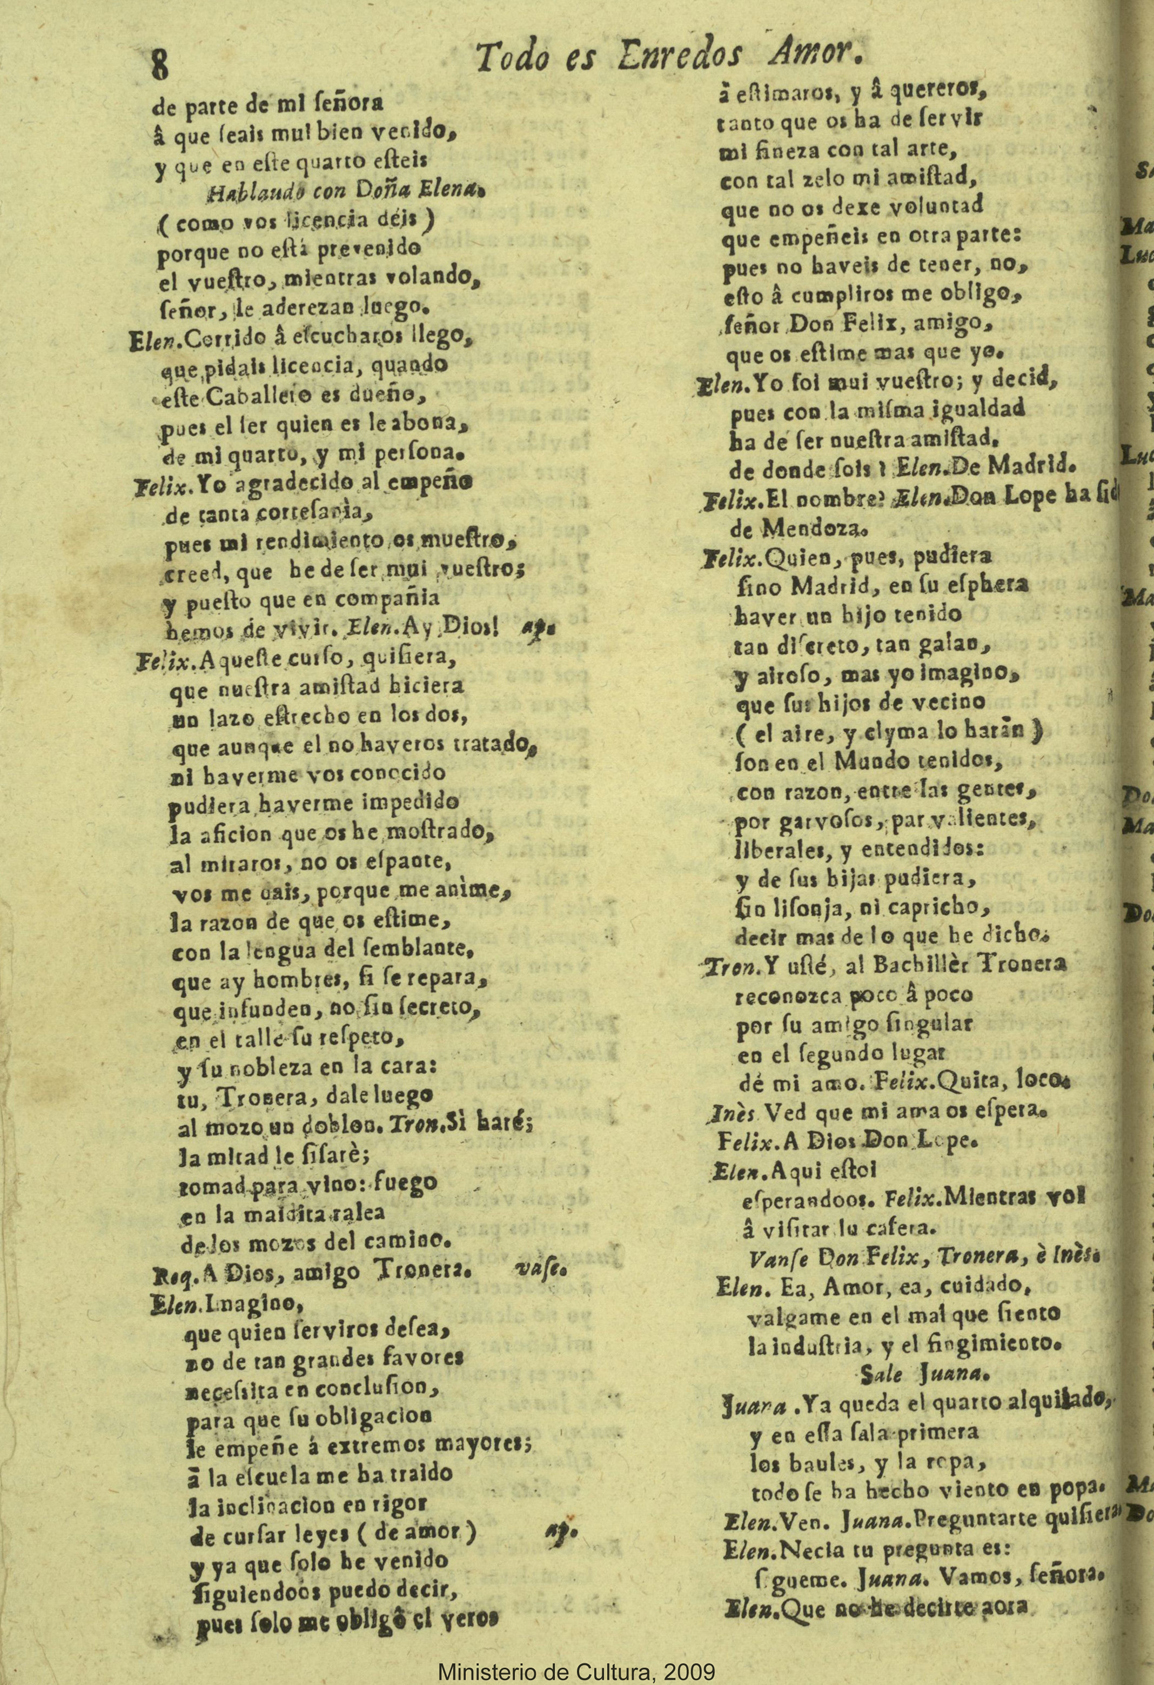 8
Todo es Enredos Amor.
de parte de mi ſeñora
â que ſeais mui bien venido,
y que en eſte quarto eſteis
Hablando con Doña Elena.
( como vos licencia déis )
porque no eſtá prevenido
el vueſtro, mientras volando,
ſeñor, le aderezan luego.
Elen.Corrido â eſcucharos llego,
que pidais licencia, quando
eſte Caballero es dueño,
pues el ſer quien es le abona,
de mi quarto, y mi perſona.
Felix.Yo agradecido al empeño
de tanta corteſanìa,
pues mi rendimiento os mueſtro,
creed, que he de ſer mui vueſtro;
y pueſto que en compañia
hemos de vivir. Elen.Ay Dios! ap.
Felix.Aqueſte curſo, quiſiera,
que nueſtra amiſtad hiciera
un lazo eſtrecho en los dos,
que aunque el no haveros tratado,
ni haverme vos conocido
pudiera haverme impedido
la aficion que os he moſtrado,
al miraros, no os eſpante,
vos me dais, porque me anìme,
la razon de que os eſtime,
con la lengua del ſemblante,
que ay hombres, ſi ſe repara,
que infunden, no ſin ſecreto,
en el talle ſu reſpeto,
y ſu nobleza en la cara:
tu, Tronera, dale luego
al mozo un doblon. Tron.Sì haré;
la mitad le ſiſarè;
tomad para vino: fuego
en la maldita ralea
de los mozos del camino.
Roq.A Dios, amigo Tronera. vaſe.
Elen.Imagino,
que quien ſerviros deſea,
no de tan grandes favores
neceſsita en concluſion,
para que ſu obligacion
le empeñe á extremos mayores;
â la eſcuela me ha traido
la inclinacion en rigor
de curſar leyes ( de amor ) ap.
y ya que ſolo he venido
ſiguiendoos puedo decir,
pues ſolo me obligô el veros
â eſtimaros, y â quereros,
tanto que os ha de ſervir
mi fineza con tal arte,
con tal zelo mi amiſtad,
que no os dexe voluntad
que empeñeis en otra parte:
pues no haveis de tener, no,
eſto â cumpliros me obligo,
ſeñor Don Felix, amigo,
que os eſtime mas que yo.
Elen.Yo ſoi mui vueſtro; y decid,
pues con la miſma igualdad
ha de ſer nueſtra amiſtad,
de donde ſois? Elen.De Madrid.
Felix.El nombre? Elen.Don Lope ha ſid
de Mendoza.
Felix.Quien, pues, pudiera
ſino Madrid, en ſu eſphera
haver un hijo tenido
tan diſcreto, tan galan,
y airoſo, mas yo imagino,
que ſus hijos de vecino
( el aire, y clyma lo haràn )
ſon en el Mundo tenidos,
con razon, entre las gentes,
por garvoſos, par valientes,
liberales, y entendidos:
y de ſus hijas pudiera,
ſin liſonja, ni capricho,
decir mas de lo que he dicho.
Tron.Y uſté, al Bachillèr Tronera
reconozca poco â poco
por ſu amigo ſingular
en el ſegundo lugar
dé mi amo. Felix.Quita, loco.
Inès Ved que mi ama os eſpera.
Felix.A Dios Don Lope.
Elen.Aqui eſtoi
eſperandoos. Felix.Mientras voi
â viſitar ſu caſera.
Vanſe Don Felix, Tronera, è Inès.
Elen. Ea, Amor, ea, cuidado,
valgame en el mal que ſiento
la induſtria, y el fingimiento.
Sale Juana.
Juana .Ya queda el quarto alquilado,
y en eſſa ſala primera
los baules, y la ropa,
todo ſe ha hecho viento en popa.
Elen.Ven. Juana.Preguntarte quiſiera
Elen.Necia tu pregunta es:
ſigueme. Juana. Vamos, ſeñora.
Elen.Que no he decirte aora
Ministerio de Cultura, 2009